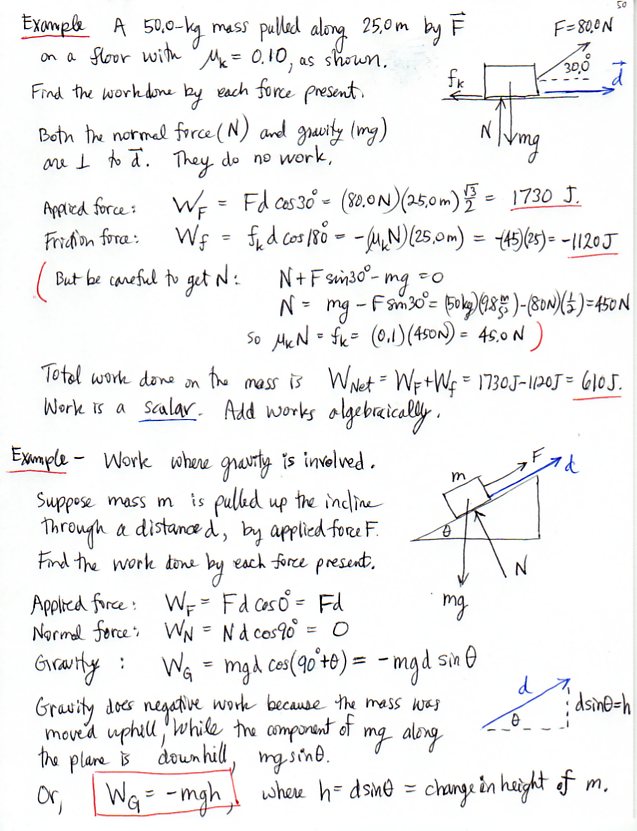 50
Example A 50.0-kg mass pulled along 25.0m by F⃗
on a floor with μk = 0.10, as shown.
Find the work done by each force present.
F = 80.0N
30.0°
fk
d⃗
N
mg
Both the normal force (N) and gravity (mg)
are ⊥ to d⃗. They do no work.
Applied force: W_F = Fd cos30° = (80.0N)(25.0m) √3/2 = 1730 J.
Friction force: W_f = fk d cos180° = -(μkN)(25.0m) = -(45)(25) = -1120J
(But be careful to get N: N + F sin30° - mg = 0
N = mg - F sin30° = (50kg)(9.8 m/s²) - (80N)(1/2) = 450N
so μkN = fk = (0.1)(450N) = 45.0 N)
Total work done on the mass is W_Net = W_F + W_f = 1730J - 1120J = 610J.
Work is a scalar. Add works algebraically.
Example - Work where gravity is involved.
Suppose mass m is pulled up the incline
through a distance d, by applied force F.
Find the work done by each force present.
m
F
d
θ
N
mg
Applied force: W_F = Fd cos0° = Fd
Normal force: W_N = Nd cos90° = 0
Gravity : W_G = mgd cos(90°+θ) = -mgd sinθ
Gravity does negative work because the mass was
moved uphill, while the component of mg along
the plane is downhill, mg sinθ.
d
θ
dsinθ=h
Or, W_G = -mgh, where h = dsinθ = change in height of m.